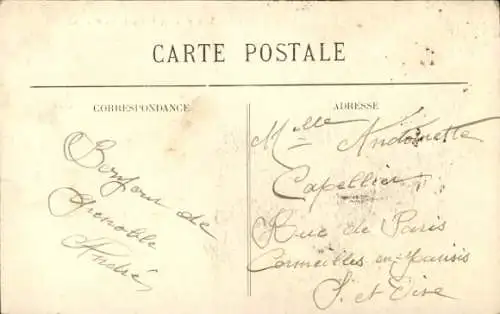 CARTE POSTALE
CORRESPONDANCE
ADRESSE
Bonjour de
Grenoble
André
Mlle Andoinette
Capellier
Rue de Paris
Cormeilles en-Parisis
S. et Oise